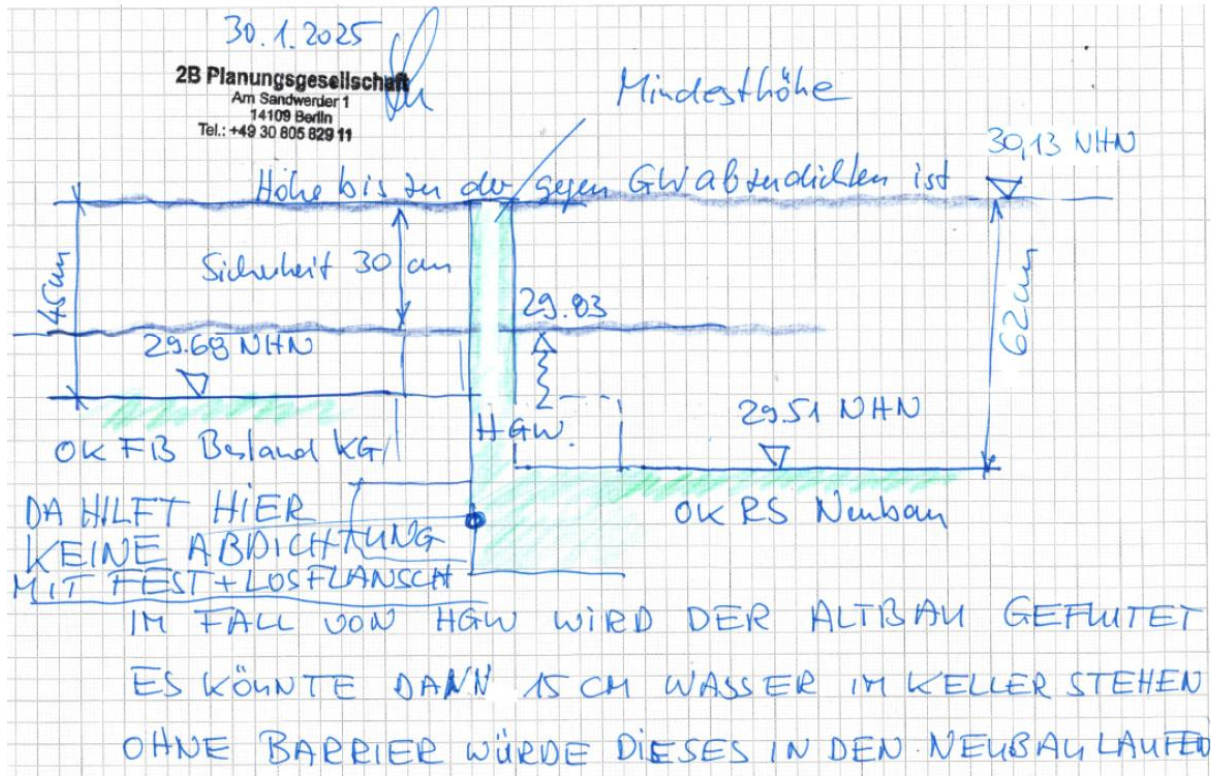 30.1.2025
2B Planungsgesellschaft
Am Sandwerder 1
14109 Berlin
Tel.: +49 30 805 829 11
Mindesthöhe
30,13 NHN
Höhe bis zu der gegen GW abzudichten ist
45cm
Sicherheit 30 cm
62cm
29.83
29.68 NHN
HGW.
29.51 NHN
OK FB Bestand KG
OK RS Neubau
DA HILFT HIER
KEINE ABDICHTUNG
MIT FEST+LOSFLANSCH
IM FALL VON HGW WIRD DER ALTBAU GEFLUTET
ES KÖNNTE DANN 15 CM WASSER IM KELLER STEHEN
OHNE BARRIER WÜRDE DIESES IN DEN NEUBAU LAUFEN